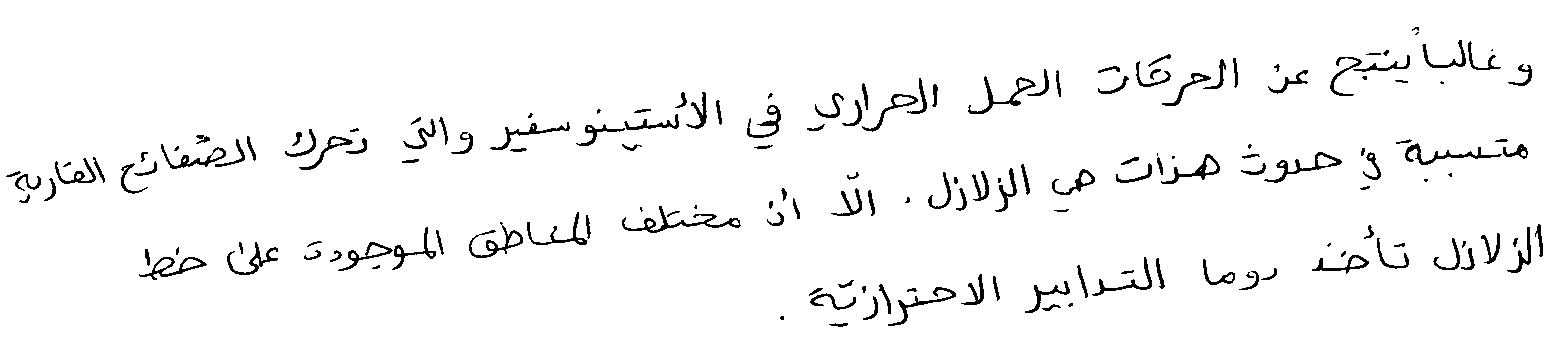 وغالباً ينتج عن الحركات الحمل الحراري في الأستينوسفير والتي تحرك الصفائح القارية
متسببة في حدوث هزات هي الزلازل . الّا أن مختلف المناطق الموجودة على خط
الزلازل تأخذ دوما التدابير الاحترازيّة .